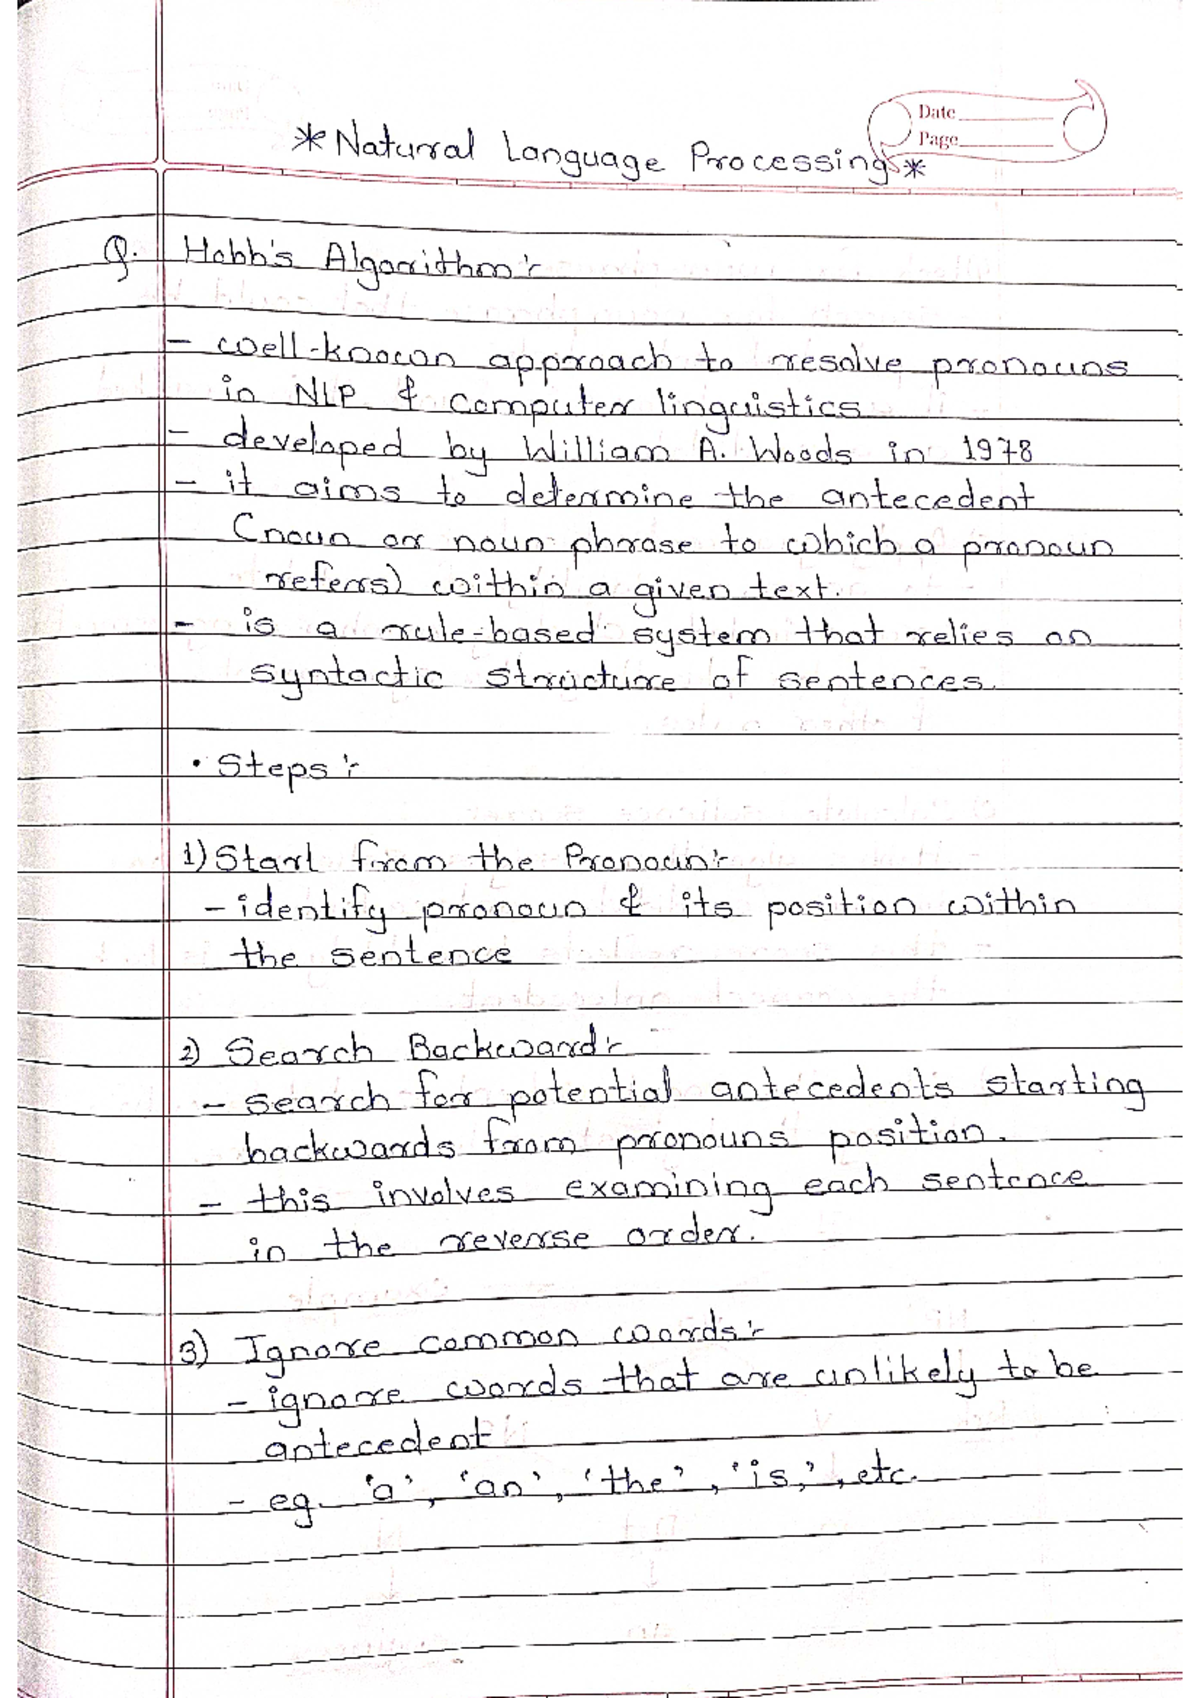 Date
Page
*Natural Language Processing*
Q. Hobb's Algorithm:-
- well-known approach to resolve pronouns
in NLP & Computer linguistics
- developed by William A. Woods in 1978
- it aims to determine the antecedent
(noun or noun phrase to which a pronoun
refers) within a given text.
- is a rule-based system that relies on
syntactic structure of sentences.
• Steps:-
1) Start from the Pronoun:-
- identify pronoun & its position within
the sentence
2) Search Backward:-
- search for potential antecedents starting
backwards from pronouns position.
- this involves examining each sentence
in the reverse order.
3) Ignore common words:-
- ignore words that are unlikely to be
antecedent
- eg. 'a', 'an', 'the', 'is,', etc.